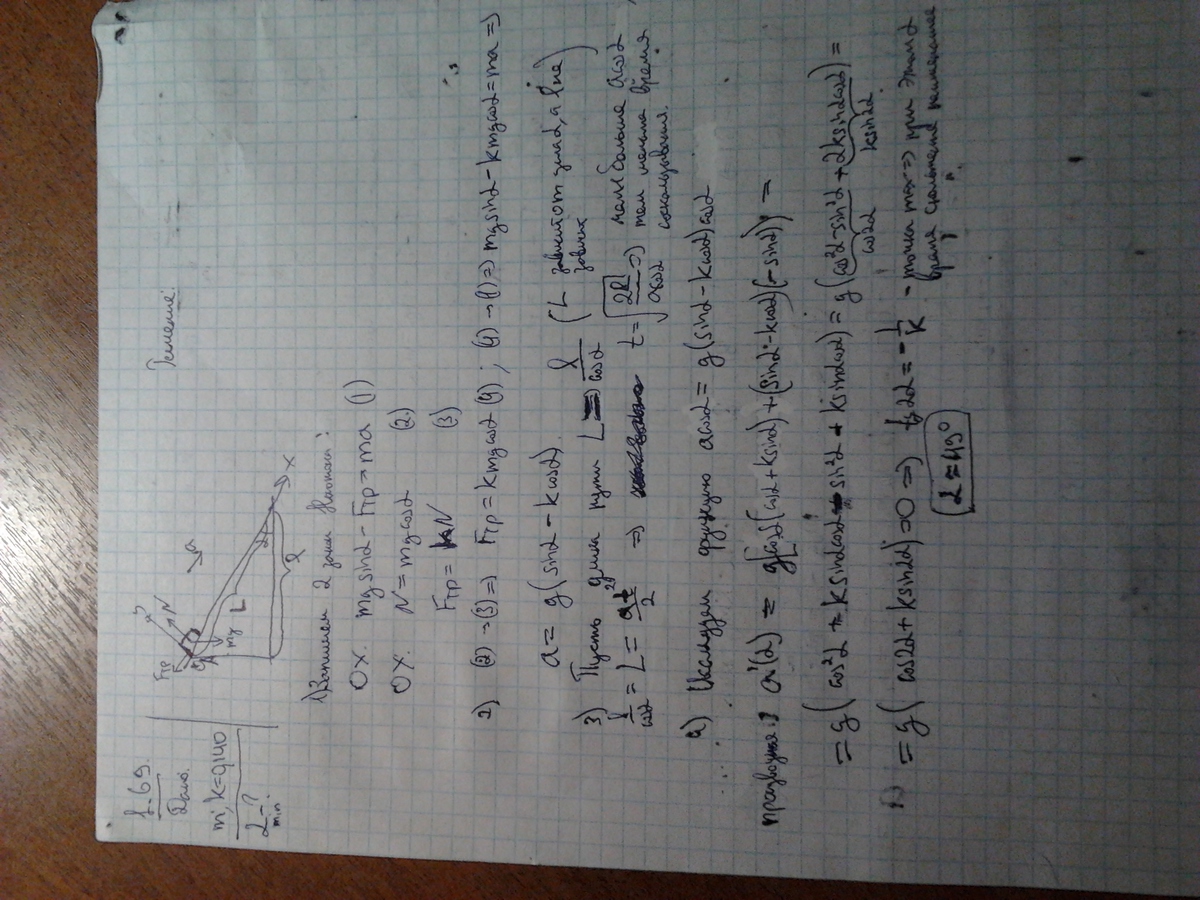 1.69.
Дано:
m; k=0,140
α-?
min
Решение:
Fтр
N
a
mg
L
α
l
x
1) Запишем 2 закон Ньютона:
OX. mg sinα - Fтр = ma (1)
OY. N = mg cosα (2)
Fтр = kN (3)
2) (2) → (3) => Fтр = kmg cosα (4) ; (4) → (1) => mg sinα - kmg cosα = ma =>
a = g(sinα - k cosα).
3) Пусть длина пути L = l/cosα (L зависит от угла α, а l не зависит)
l/cosα = L = at²/2 => t = √(2l/(a cosα)) => чем больше a cosα тем меньше время соскальзывания.
4) Исследуем функцию a cosα = g(sinα - k cosα) cosα
производная: a'(α) = g[cosα(cosα + k sinα) + (sinα - k cosα)(-sinα)] =
= g(cos²α + k sinα cosα - sin²α + k sinα cosα) = g(cos²α - sin²α + 2k sinα cosα) =
cos2α
k sin2α
= g(cos2α + k sin2α) = 0 => tg 2α = -1/k - точка max => при этом α время скольжения наименьшее
α = 49°